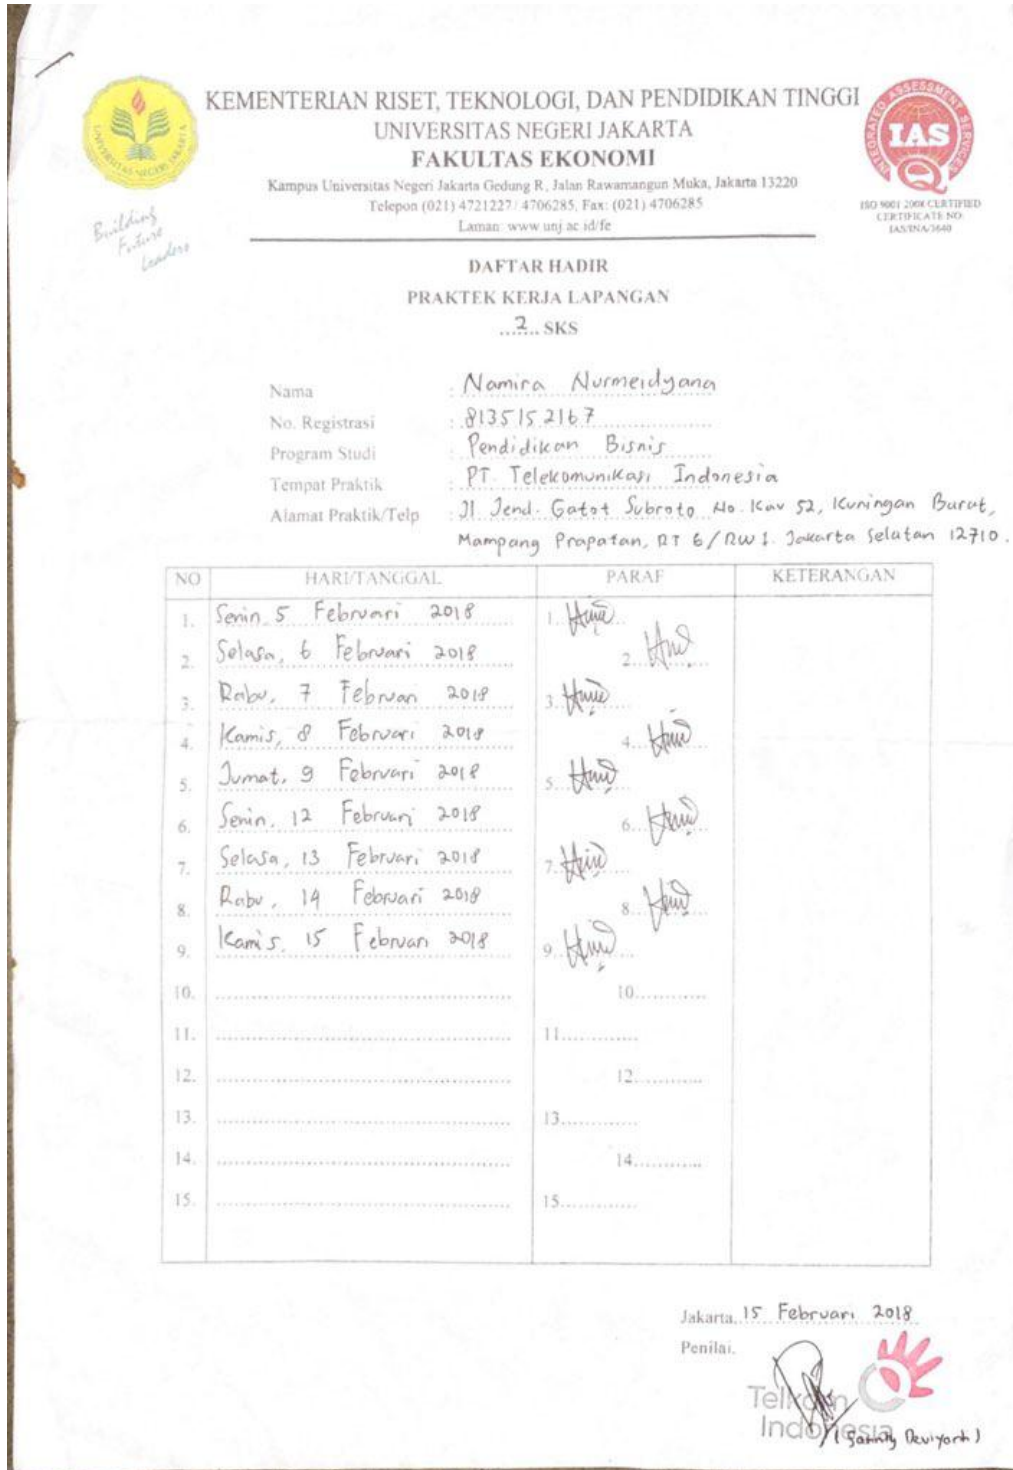 KEMENTERIAN RISET, TEKNOLOGI, DAN PENDIDIKAN TINGGI
UNIVERSITAS NEGERI JAKARTA
FAKULTAS EKONOMI
Kampus Universitas Negeri Jakarta Gedung R, Jalan Rawamangun Muka, Jakarta 13220
Telepon (021) 4721227/ 4706285, Fax: (021) 4706285
Laman: www.unj.ac.id/fe
UNIVERSITAS NEGERI JAKARTA
Building
Future
Leaders
INTEGRATED ASSESSMENT SERVICES
IAS
ISO 9001 2008 CERTIFIED
CERTIFICATE NO.
IAS/INA/3640
DAFTAR HADIR
PRAKTEK KERJA LAPANGAN
...2.. SKS
Nama : Namira Nurmeidyana
No. Registrasi : 8135152167
Program Studi : Pendidikan Bisnis
Tempat Praktik : PT. Telekomunikasi Indonesia
Alamat Praktik/Telp : Jl. Jend. Gatot Subroto No. Kav 52, Kuningan Barat,
Mampang Prapatan, RT 6/RW 1. Jakarta Selatan 12710.
NO HARI/TANGGAL PARAF KETERANGAN
1. Senin 5 Februari 2018 1.
2. Selasa, 6 Februari 2018 2.
3. Rabu, 7 Februari 2018 3.
4. Kamis, 8 Februari 2018 4.
5. Jumat, 9 Februari 2018 5.
6. Senin, 12 Februari 2018 6.
7. Selasa, 13 Februari 2018 7.
8. Rabu, 14 Februari 2018 8.
9. Kamis, 15 Februari 2018 9.
10. 10.
11. 11.
12. 12.
13. 13.
14. 14.
15. 15.
Jakarta, 15 Februari 2018
Penilai,
Telkom
Indonesia